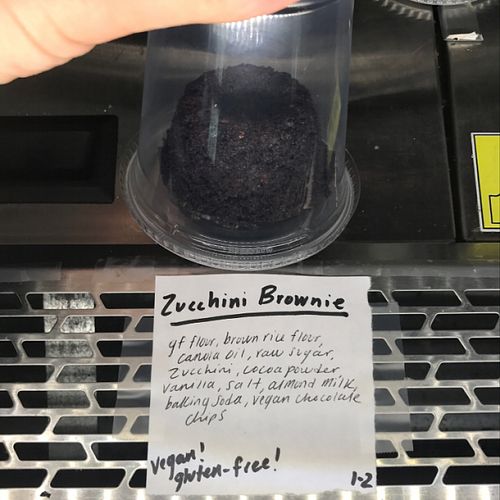 Zucchini Brownie
gf flour, brown rice flour,
canola oil, raw sugar,
zucchini, cocoa powder,
vanilla, salt, almond milk,
baking soda, vegan chocolate
chips
vegan!
gluten-free!
1-2